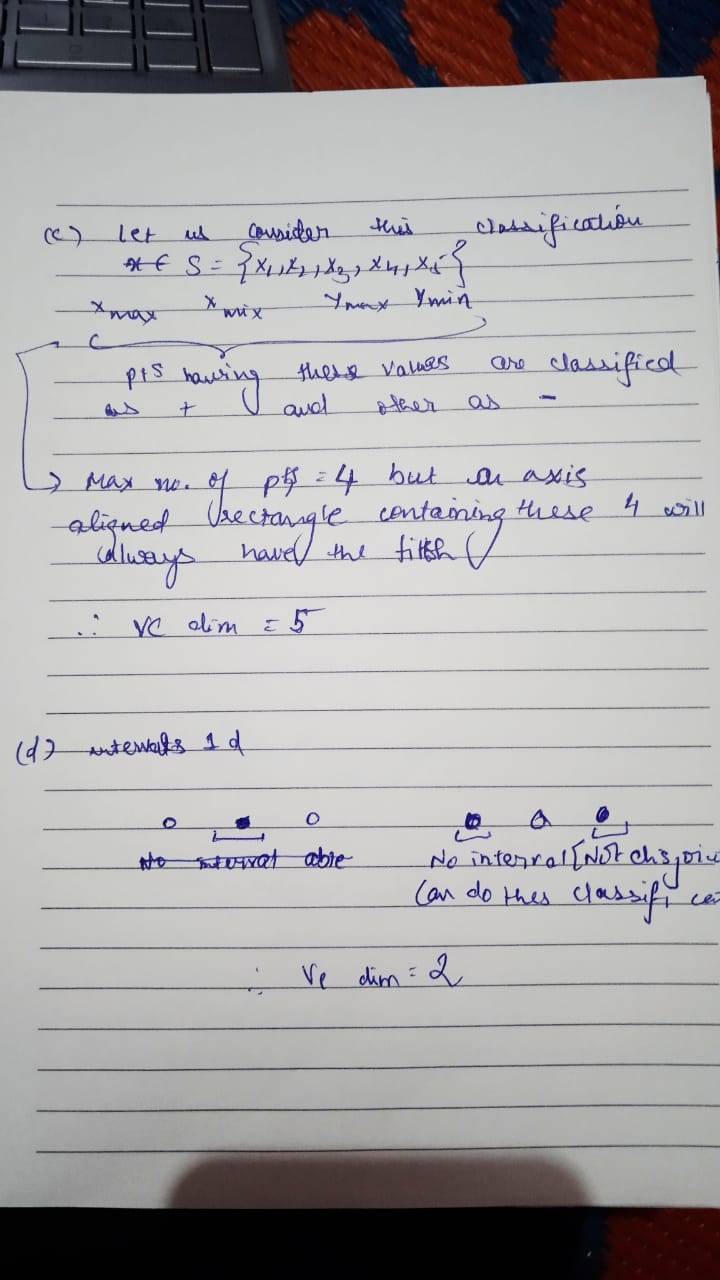 (c) Let us consider this classification
S = {x1, x2, x3, x4, x5}
x max x mix Ymax Ymin
pts having these values are classified
as + and other as -
→ Max no. of pts = 4 but an axis
aligned rectangle containing these 4 will
always have the fifth
∴ VC dim = 5
(d) intervals 1 d
No interval able No interval [Not disjoi
Can do thes classifi
∴ VC dim = 2